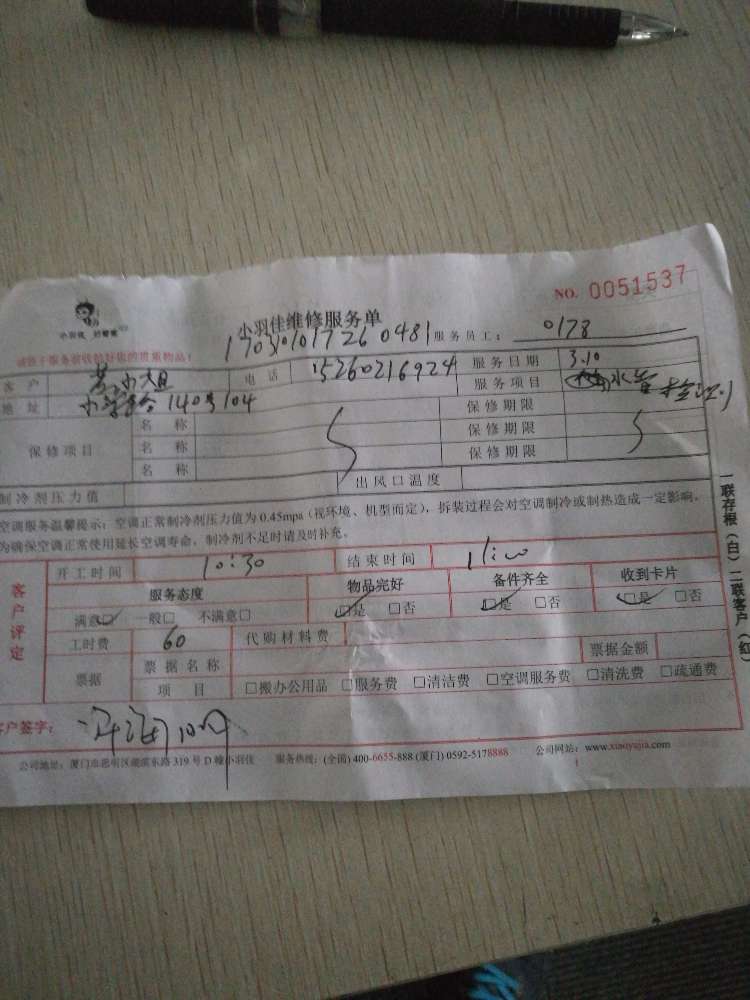 NO. 0051537
小羽佳维修服务单
小羽佳
170301017260481 服务员工: 0178
请勿于服务前收拾好您的贵重物品!
客户 小姐 电话 15260216924 服务日期 3.10
地址 140号104 服务项目 水管
保修项目
名称 保修期限
名称 保修期限
名称 保修期限
制冷剂压力值 出风口温度
空调服务温馨提示: 空调正常制冷剂压力值为 0.45mpa (视环境、机型而定), 拆装过程会对空调制冷或制热造成一定影响,
为确保空调正常使用延长空调寿命, 制冷剂不足时请及时补充。
客户评定
开工时间 10:30 结束时间 11:00
服务态度 物品完好 备件齐全 收到卡片
满意□ 一般□ 不满意□ □是 □否 □是 □否 □是 □否
工时费 60 代购材料费
票据 票据名称 票据金额
项目 □搬办公用品 □服务费 □清洁费 □空调服务费 □清洗费 □疏通费
客户签字:
公司地址: 厦门市思明区 东路 319 号 D 幢小羽佳 服务热线: (全国) 400-6655-888 (厦门) 0592-5178888 公司网站: www.xiaoyujia.com
一联存根(白) 二联客户(红)